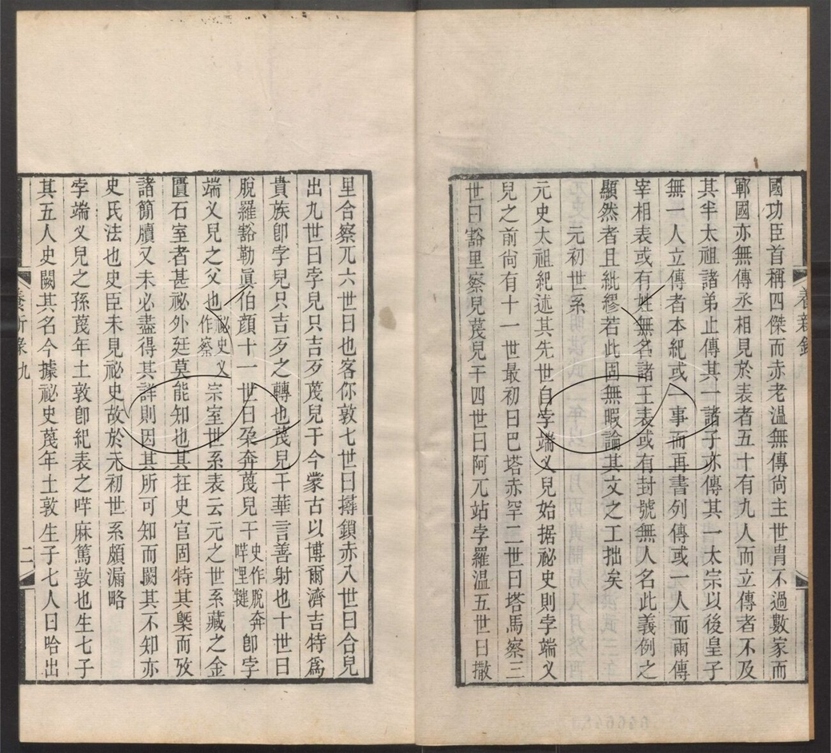 國功臣首稱四傑而赤老溫無傳尚主世胄不過數家而
鄆國亦無傳丞相見於表者五十有九人而立傳者不及
其半太祖諸弟止傳其一諸子亦傳其一太宗以後皇子
無一人立傳者本紀或一事而再書列傳或一人而兩傳
宰相表或有姓無名諸王表或有封號無人名此義例之
顯然者且紕繆若此固無暇論其文之工拙矣
元初世系
元史太祖紀述其先世自孛端義兒始据祕史則孛端义
兒之前尙有十一世最初曰巴塔赤罕二世曰塔馬察三
世曰豁里察兒蔑兒干四世曰阿兀站孛羅溫五世曰撒
里合察兀六世曰也客你敦七世曰撏鎖赤八世曰合兒
出九世曰孛兒只吉歹蔑兒干今蒙古以博爾濟吉特爲
貴族卽孛兒只吉歹之轉也蔑兒干華言善射也十世曰
脫羅豁勒眞伯顏十一世曰朶奔蔑兒干史作脫奔咩哩揵卽孛
端义兒之父也祕史义作察宗室世系表云元之世系藏之金
匱石室者甚祕外廷莫能知也其在史官固特其槩而攷
諸簡牘又未必盡得其詳則因其所可知而闕其不知亦
史氏法也史臣未見祕史故於元初世系頗漏略
孛端义兒之孫蔑年土敦卽紀表之咩麻篤敦也生七子
其五人史闕其名今據祕史蔑年土敦生子七人曰哈出
養新錄
養新錄九
二